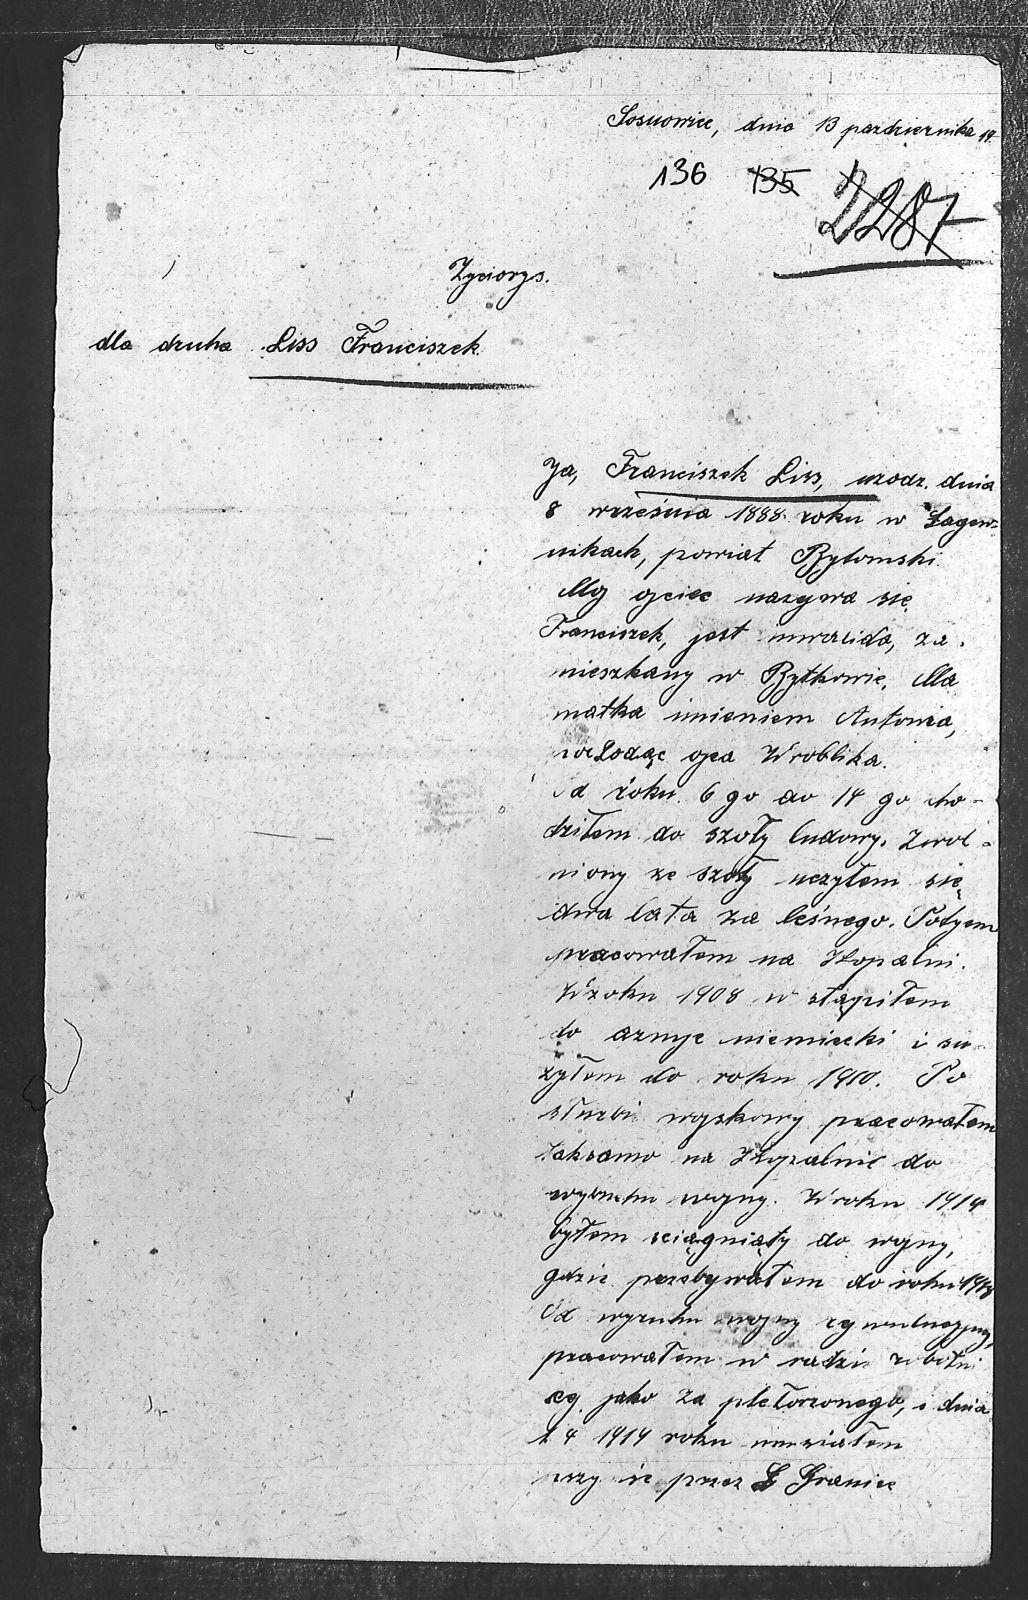 Sosnowiec, dnia 13 pazdziernika 19
136 135 2287
Zyciorys.
dla druha Liss Franciszek
Ja, Franciszek Liss, urodz. dnia
8 września 1888 roku w Łagew=
nikach, powiat Bytomski.
Mój ojciec nazywa się
Franciszek, jest inwalida, za.
mieszkany w Bytkowie. Ma
matka imieniem Antonia,
ojca Wroblika.
Od roku 6 go do 14 go cho-
dziłem do szoły ludowy. Zwol-
niony ze szoły uczyłem się
dwa lata za leśnego. Potyem
pracowałem na Kopalni.
W roku 1908 w stąpiłem
do armje niemiecki i su-
zyłem do roku 1910. Po
służbi wojskowy pracowałem
taksamo na Kopalnie do
wybuchu wojny. W roku 1914
byłem sciągniąty do wojny,
gdzie przebywałem do roku 1918
Od wyruhu wojny
pracowałem w radzie robotni
cy jako za, i dnia
1 4 1919 roku musiałem
przez G Graniec